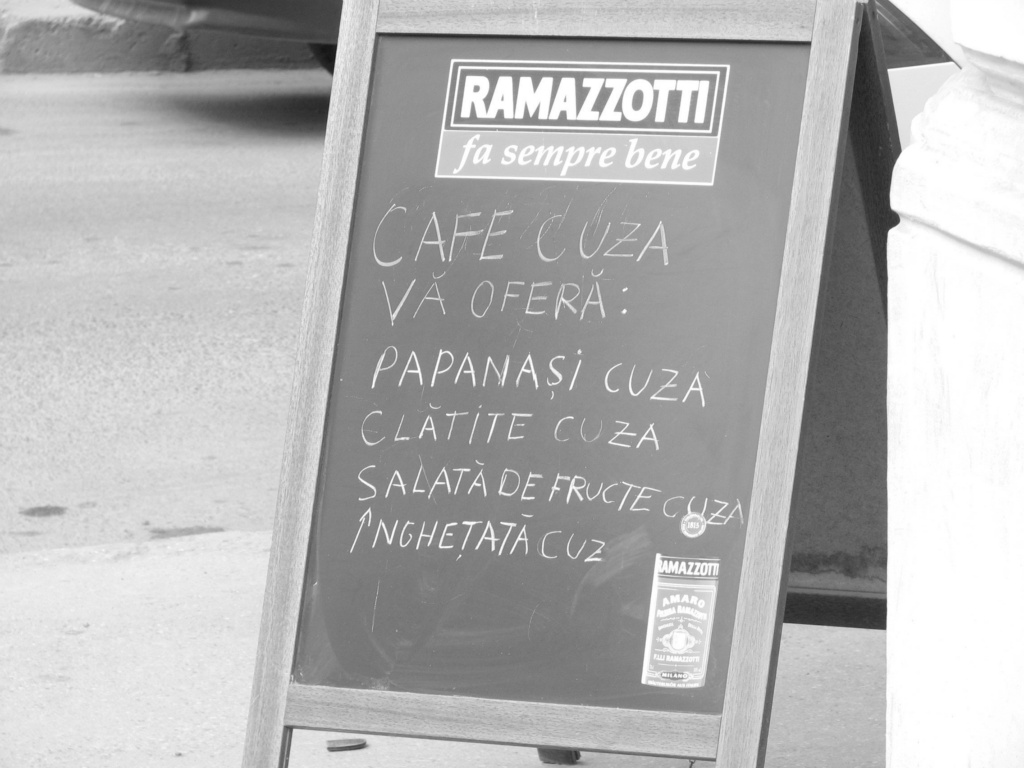 RAMAZZOTTI
fa sempre bene
CAFE CUZA
VĂ OFERĂ:
PAPANAȘI CUZA
CLĂTITE CUZA
SALATĂ DE FRUCTE CUZA
ÎNGHEȚATĂ CUZ
1815
RAMAZZOTTI
AMARO
FELSINA RAMAZZOTTI
F.LLI RAMAZZOTTI
MILANO